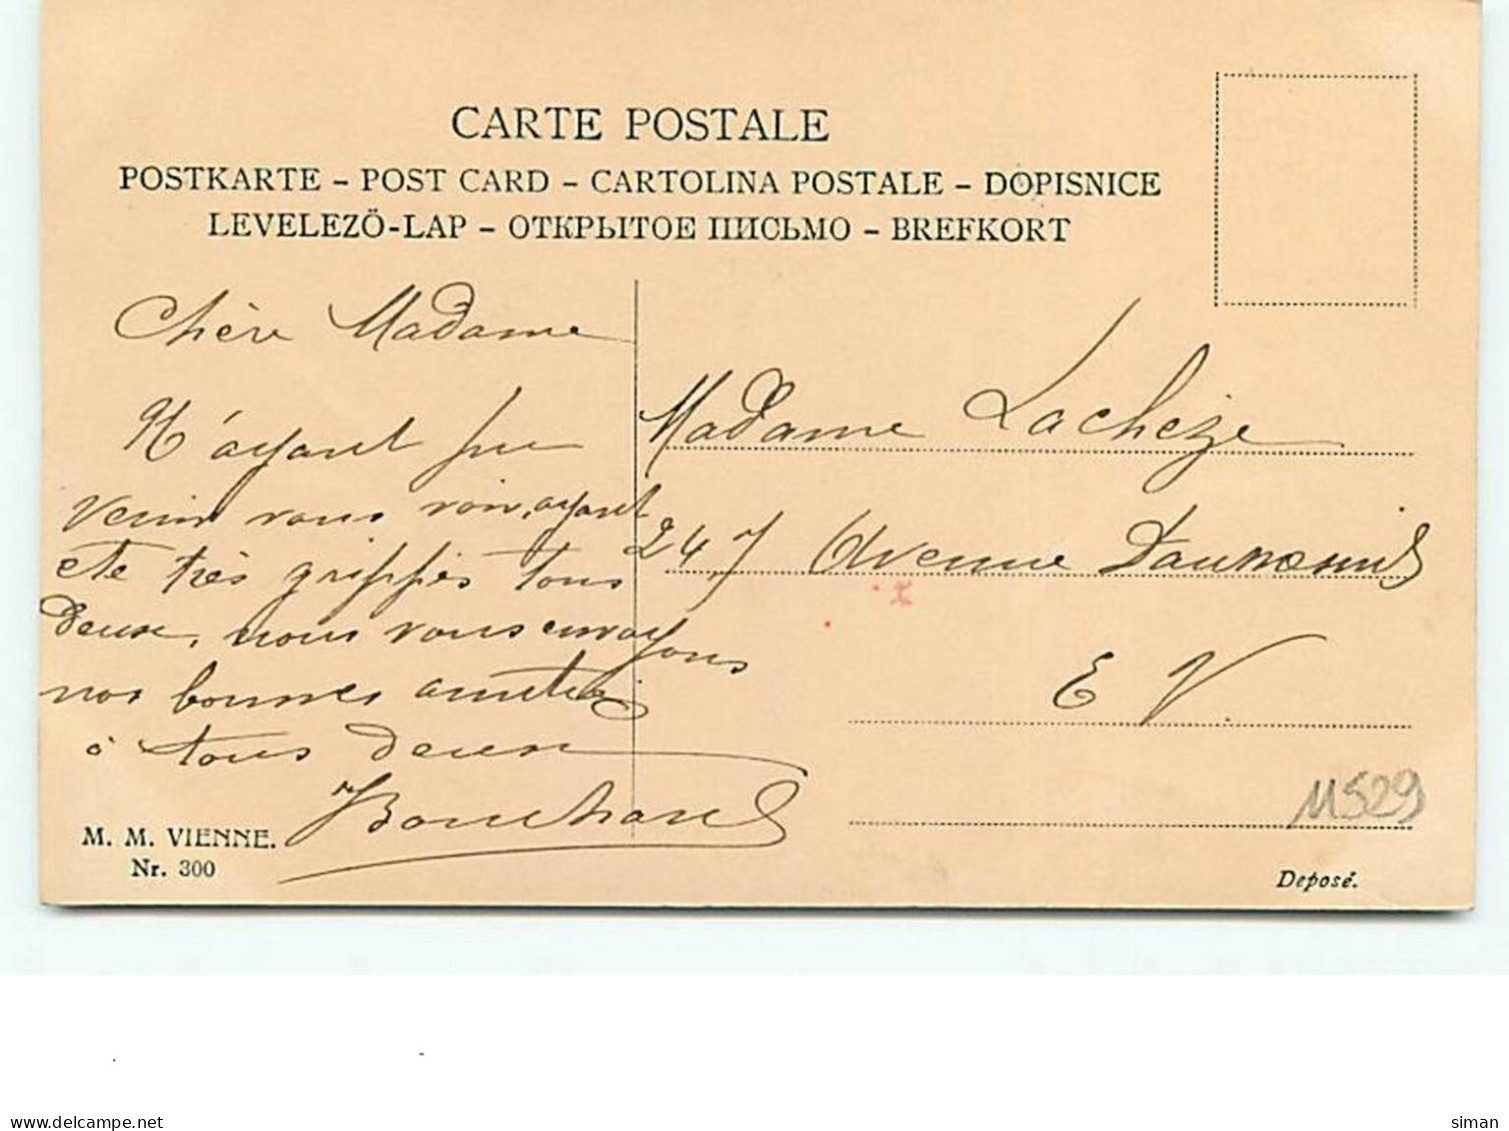 CARTE POSTALE
POSTKARTE – POST CARD – CARTOLINA POSTALE – DOPISNICE
LEVELEZÖ-LAP – ОТКРЫТОЕ ПИСЬМО – BREFKORT
Chère Madame
N'ayant pu
venir vous voir, ayant
ete très grippés tous
deux, nous vous envoyons
nos bonnes amitiés
à tous deux
Bouchard
Madame Lachèze
247 Avenue Daumesnil
E V.
11529
M. M. VIENNE.
Nr. 300
Deposé.
delcampe.net
siman